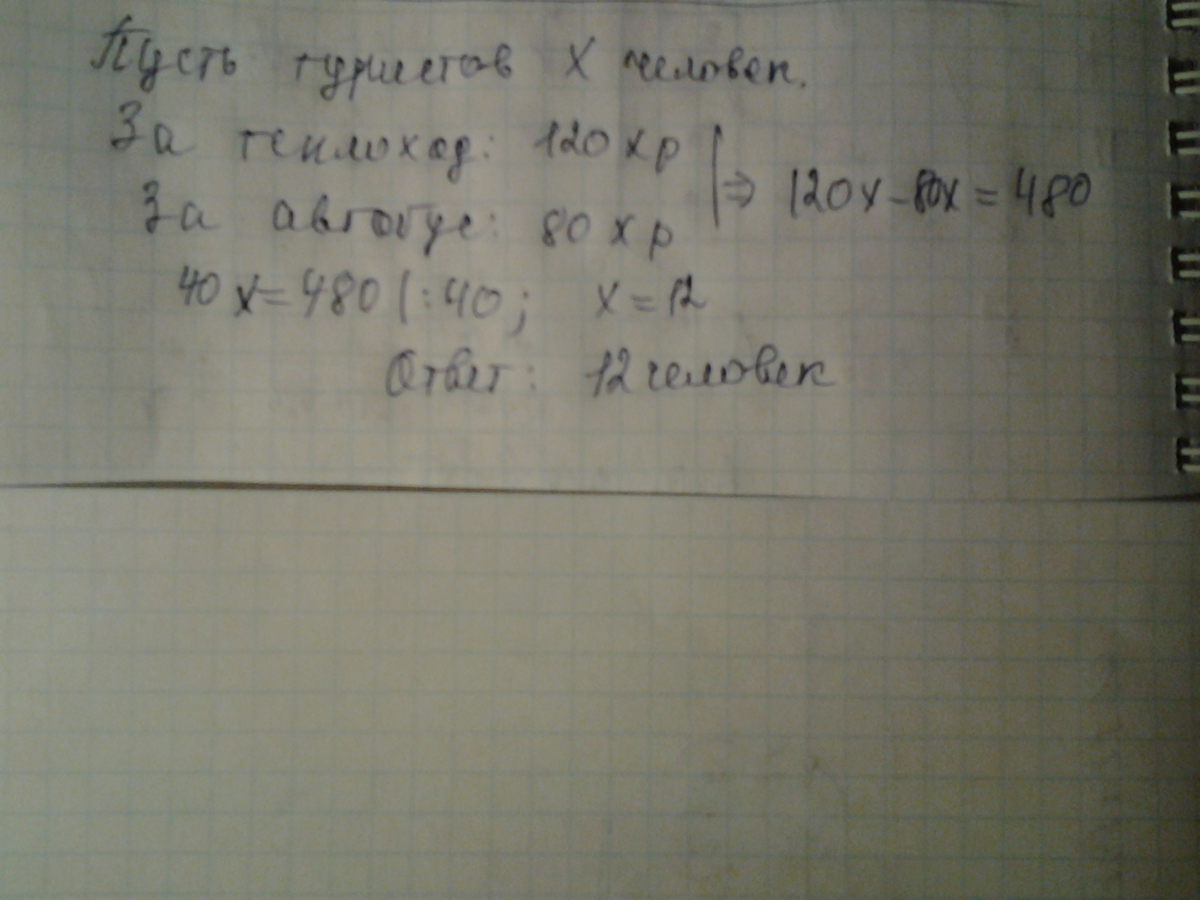 Пусть туристов X человек.
За теплоход: 120 x р
За автобус: 80 x р
|⇒ 120x-80x = 480
40 x = 480 |:40; x = 12
Ответ: 12 человек